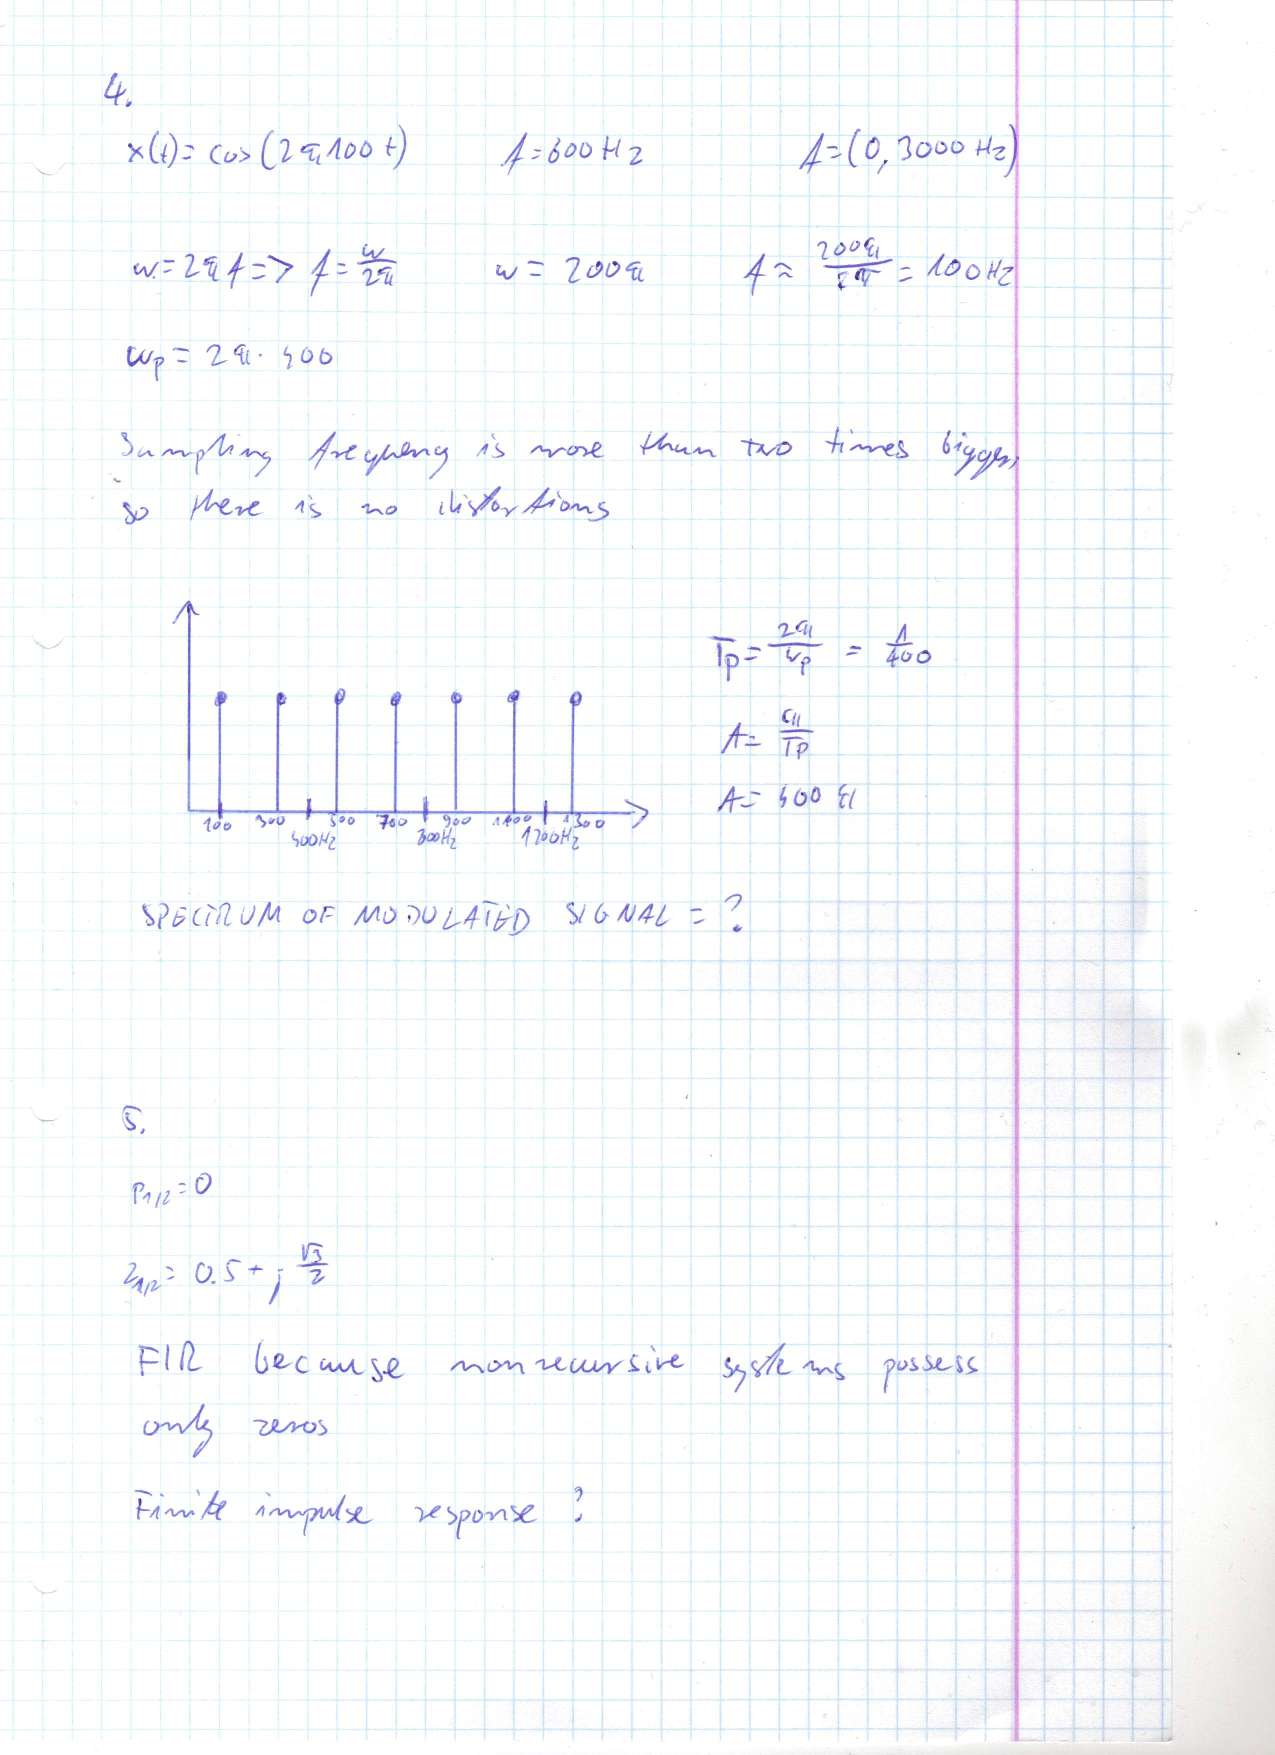 4.
x(t) = cos(2π100t) f=600Hz f=(0, 3000Hz)
w=2πf => f=w/2π w=200π f= 200π/2π = 100Hz
wp=2π·400
Sampling frequency is more than two times bigger,
so there is no distortions
Tp=2π/wp = 1/400
A=π/Tp
A=400π
100 300 500 700 900 1100 1300
400Hz 800Hz 1200Hz
SPECTRUM OF MODULATED SIGNAL = ?
5.
P1/2=0
Z1/2=0.5+j √3/2
FIR because nonrecursive systems possess
only zeros
Finite impulse response ?